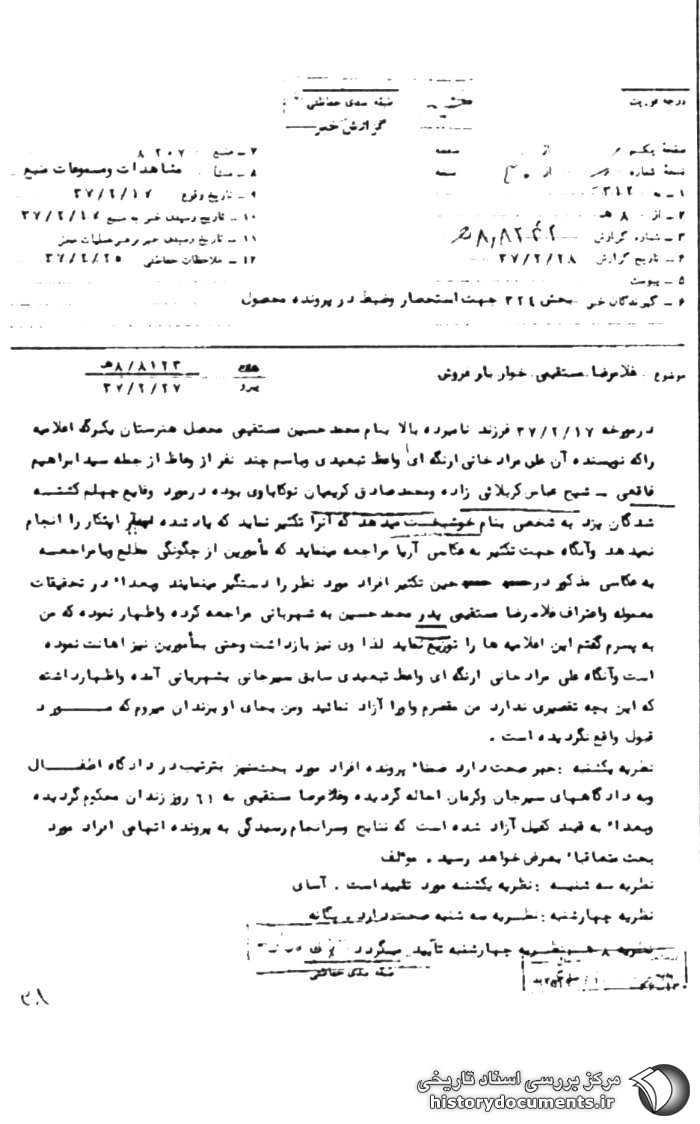 درجه فوریت
طبقه بندی حفاظتی
گزارش خبر
صفحه یکم از صفحه
نسخه شماره از صفحه
۱ - به ۳۱۲
۲ - از ۸ هـ
۳ - شماره گزارش
۴ - تاریخ گزارش ۳۷/۲/۲۸
۵ - پیوست
۶ - گیرندگان خبر بخش ۳۲۴ جهت استحضار وضبط در پرونده محصول
۷ - منبع ۸۲۰۷
۸ - منشأ مشاهدات ومسموعات منبع
۹ - تاریخ وقوع ۳۷/۲/۱۷
۱۰ - تاریخ رسیدن خبر به منبع ۳۷/۲/۱۷
۱۱ - تاریخ رسیدن خبر به رهبر عملیات
۱۲ - ملاحظات حفاظتی ۳۷/۲/۲۵
موضوع : غلامرضا مستقیمی خوار بار فروش
پیرو ۸/۸۱۲۳هـ
۳۷/۲/۲۷
درمورخه ۳۷/۲/۱۷ فرزند نامبرده بالا بنام محمد حسین مستقیمی محصل هنرستان یکبرگ اعلامیه
راکه نویسنده آن علی مراد خانی ارنگه ای واعظ تبعیدی وباسم چند نفر از وعاظ از جمله سید ابراهیم
قانعی - شیخ عباس کربلائی زاده ومحمد صادق کریمیان نوکاباوی بوده درمورد وقایع چهلم کشته
شدگان یزد به شخصی بنام خوشبخت میدهد که آنرا تکثیر نماید که یاد شده اینکار را انجام
نمیدهد وآنگاه جهت تکثیر به عکاسی آریا مراجعه مینماید که مأمورین از چگونگی مطلع وبا مراجعه
به عکاسی مذکور در حین تکثیر افراد مورد نظر را دستگیر مینمایند وبعداً در تحقیقات
معموله واعتراف غلامرضا مستقیمی پدر محمد حسین به شهربانی مراجعه کرده واظهار نموده که من
به پسرم گفتم این اعلامیه ها را توزیع نماید لذا وی نیز بازداشت وحتی بمأمورین نیز اهانت نموده
است وآنگاه علی مراد خانی ارنگه ای واعظ تبعیدی سابق سیرجانی بشهربانی آمده واظهارداشته
که این بچه تقصیری ندارد من مقصرم واورا آزاد نمائید ومن بجای او بزندان میروم که مـــورد
قبول واقع نگردیده است .
نظریه یکشنبه : خبر صحت دارد ضمناً پرونده افراد مورد بحث نیز بترتیب در دادگاه اطفـــال
وبه دادگاههای سیرجان وکرمان احاله گردیده وغلامرضا مستقیمی به ۶۱ روز زندان محکوم گردیده
وبعداً به قید کفیل آزاد شده است که نتایج وسرانجام رسیدگی به پرونده اتهامی افراد مورد
بحث متعاقباً بعرض خواهد رسید . مؤلف
نظریه سه شنبـه : نظریه یکشنبه مورد تأیید است . آسای
نظریه چهارشنبه : نظـریه سه شنبه صحت دارد . یگانه
نظریه ۸ هـ : نظـریه چهارشنبه تأیید میگردد
طبقه بندی حفاظتی
۳۰۸
مرکز بررسی اسناد تاریخی
historydocuments.ir